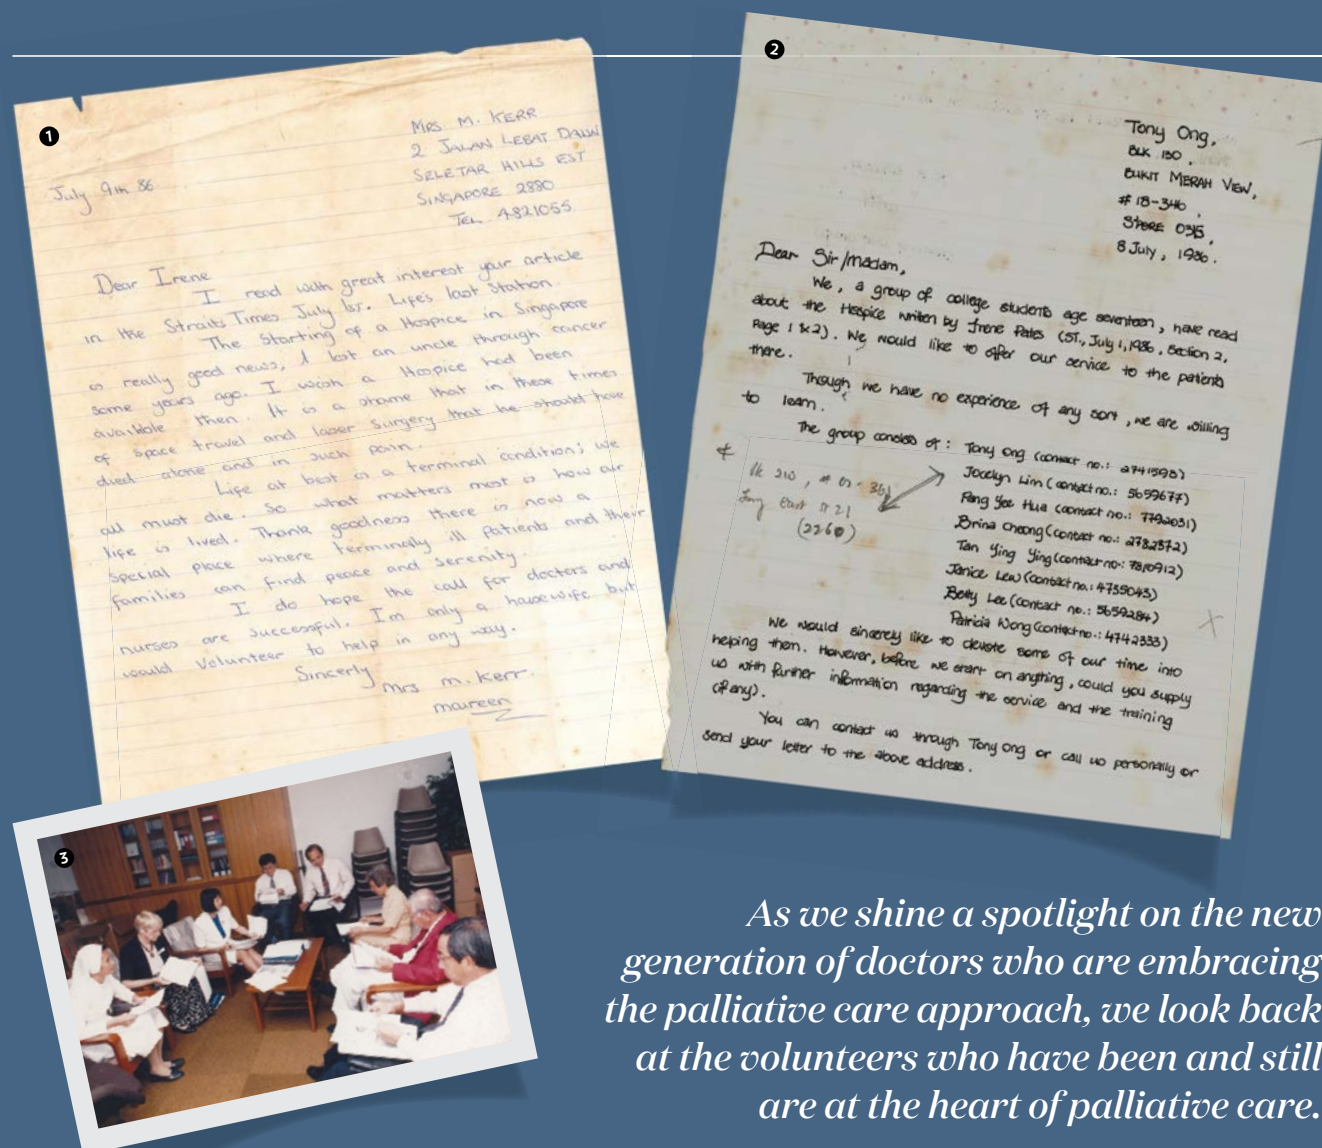 1
July 9th 86
MRS M. KERR
2 JALAN LEBAT DAUN
SELETAR HILLS EST
SINGAPORE 2880
TEL 4821055
Dear Irene
I read with great interest your article
in the Straits Times July 1st. Life's last Station.
The Starting of a Hospice in Singapore
is really good news, I lost an uncle through cancer
some years ago. I wish a Hospice had been
available then. It is a shame that in these times
of space travel and laser surgery that he should have
died alone and in such pain.
Life at best is a terminal condition; we
all must die. So what matters most is how our
life is lived. Thank goodness there is now a
special place where terminally ill patients and their
families can find peace and serenity.
I do hope the call for doctors and
nurses are successful. I'm only a housewife but
would Volunteer to help in any way.
Sincerly
Mrs M. Kerr.
maureen
2
Tony Ong,
BLK 130,
BUKIT MERAH VIEW,
# 18-346,
S'PORE 0315,
8 July, 1986.
Dear Sir/madam,
We, a group of college students age seventeen, have read
about the Hospice written by Irene Pates (ST., July 1, 1986, Section 2,
Page 1 & 2). We would like to offer our service to the patients
there.
Though we have no experience of any sort, we are willing
to learn.
The group consists of: Tony Ong (contact no.: 2741598)
Jocelyn Lim (contact no.: 5659677)
Pang Yee Hua (contact no.: 7792031)
Brina Cheong (contact no.: 2782572)
Tan Ying Ying (contact no.: 7810912)
Janice Lew (contact no.: 4735043)
Betty Lee (contact no.: 5659284)
Patricia Wong (contact no.: 4742333)
(2260)
We would sincerely like to devote some of our time into
helping them. However, before we start on anything, could you supply
us with further information regarding the service and the training
(if any).
You can contact us through Tony Ong or call us personally or
send your letter to the above address.
3
As we shine a spotlight on the new
generation of doctors who are embracing
the palliative care approach, we look back
at the volunteers who have been and still
are at the heart of palliative care.